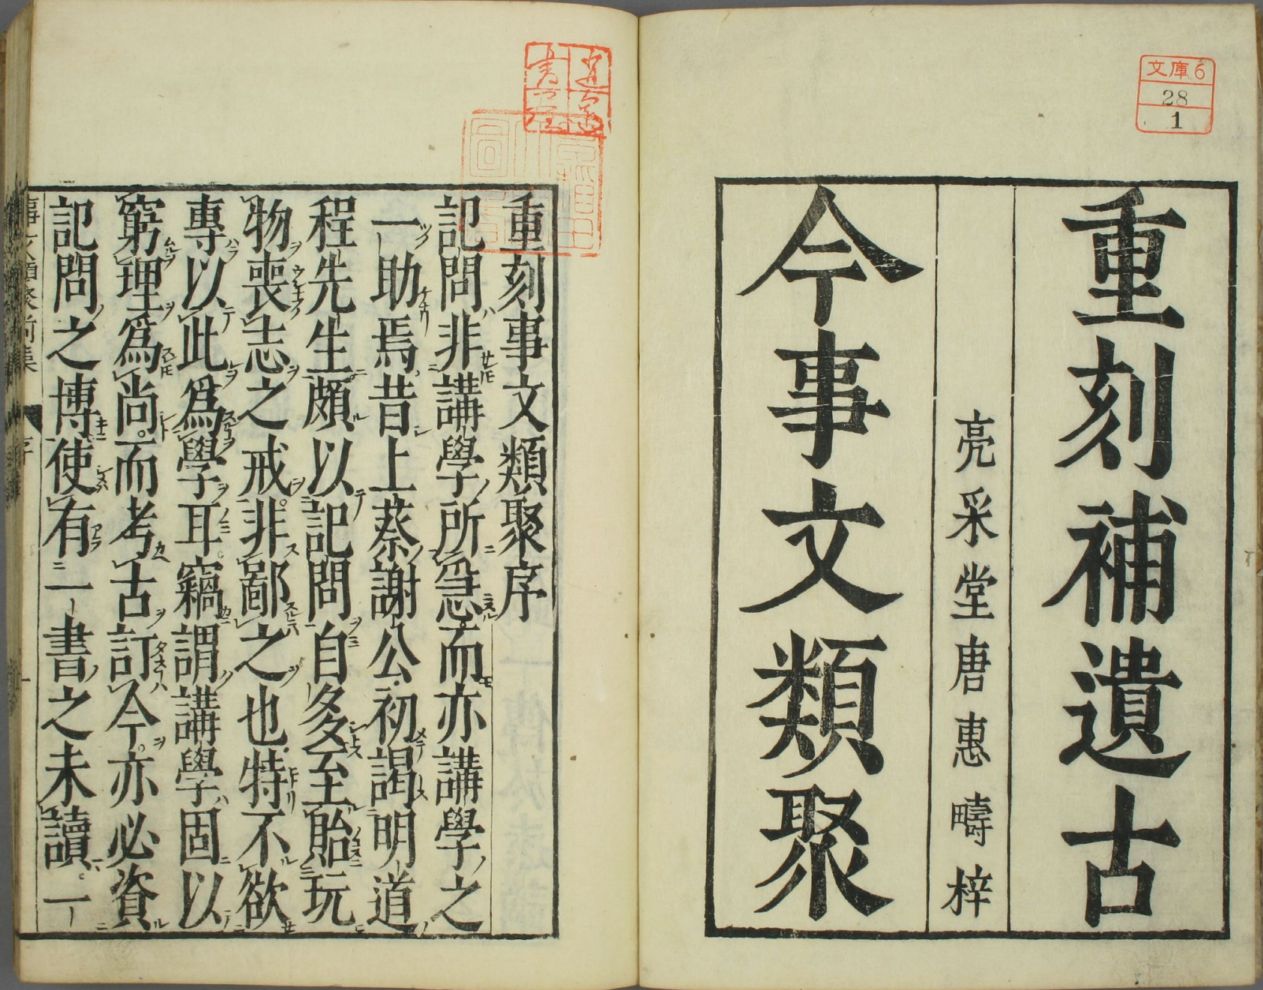 文庫6
28
1
重刻補遺古
亮采堂唐惠疇梓
今事文類聚
重刻事文類聚序
記問非講學所急而亦講學之
一助焉昔上蔡謝公初謁明道
程先生頗以記問自多至貽玩
物喪志之戒非鄙之也特不欲
專以此爲學耳竊謂講學固以
窮理爲尚而考古訂今亦必資
記問之博使有一書之未讀一